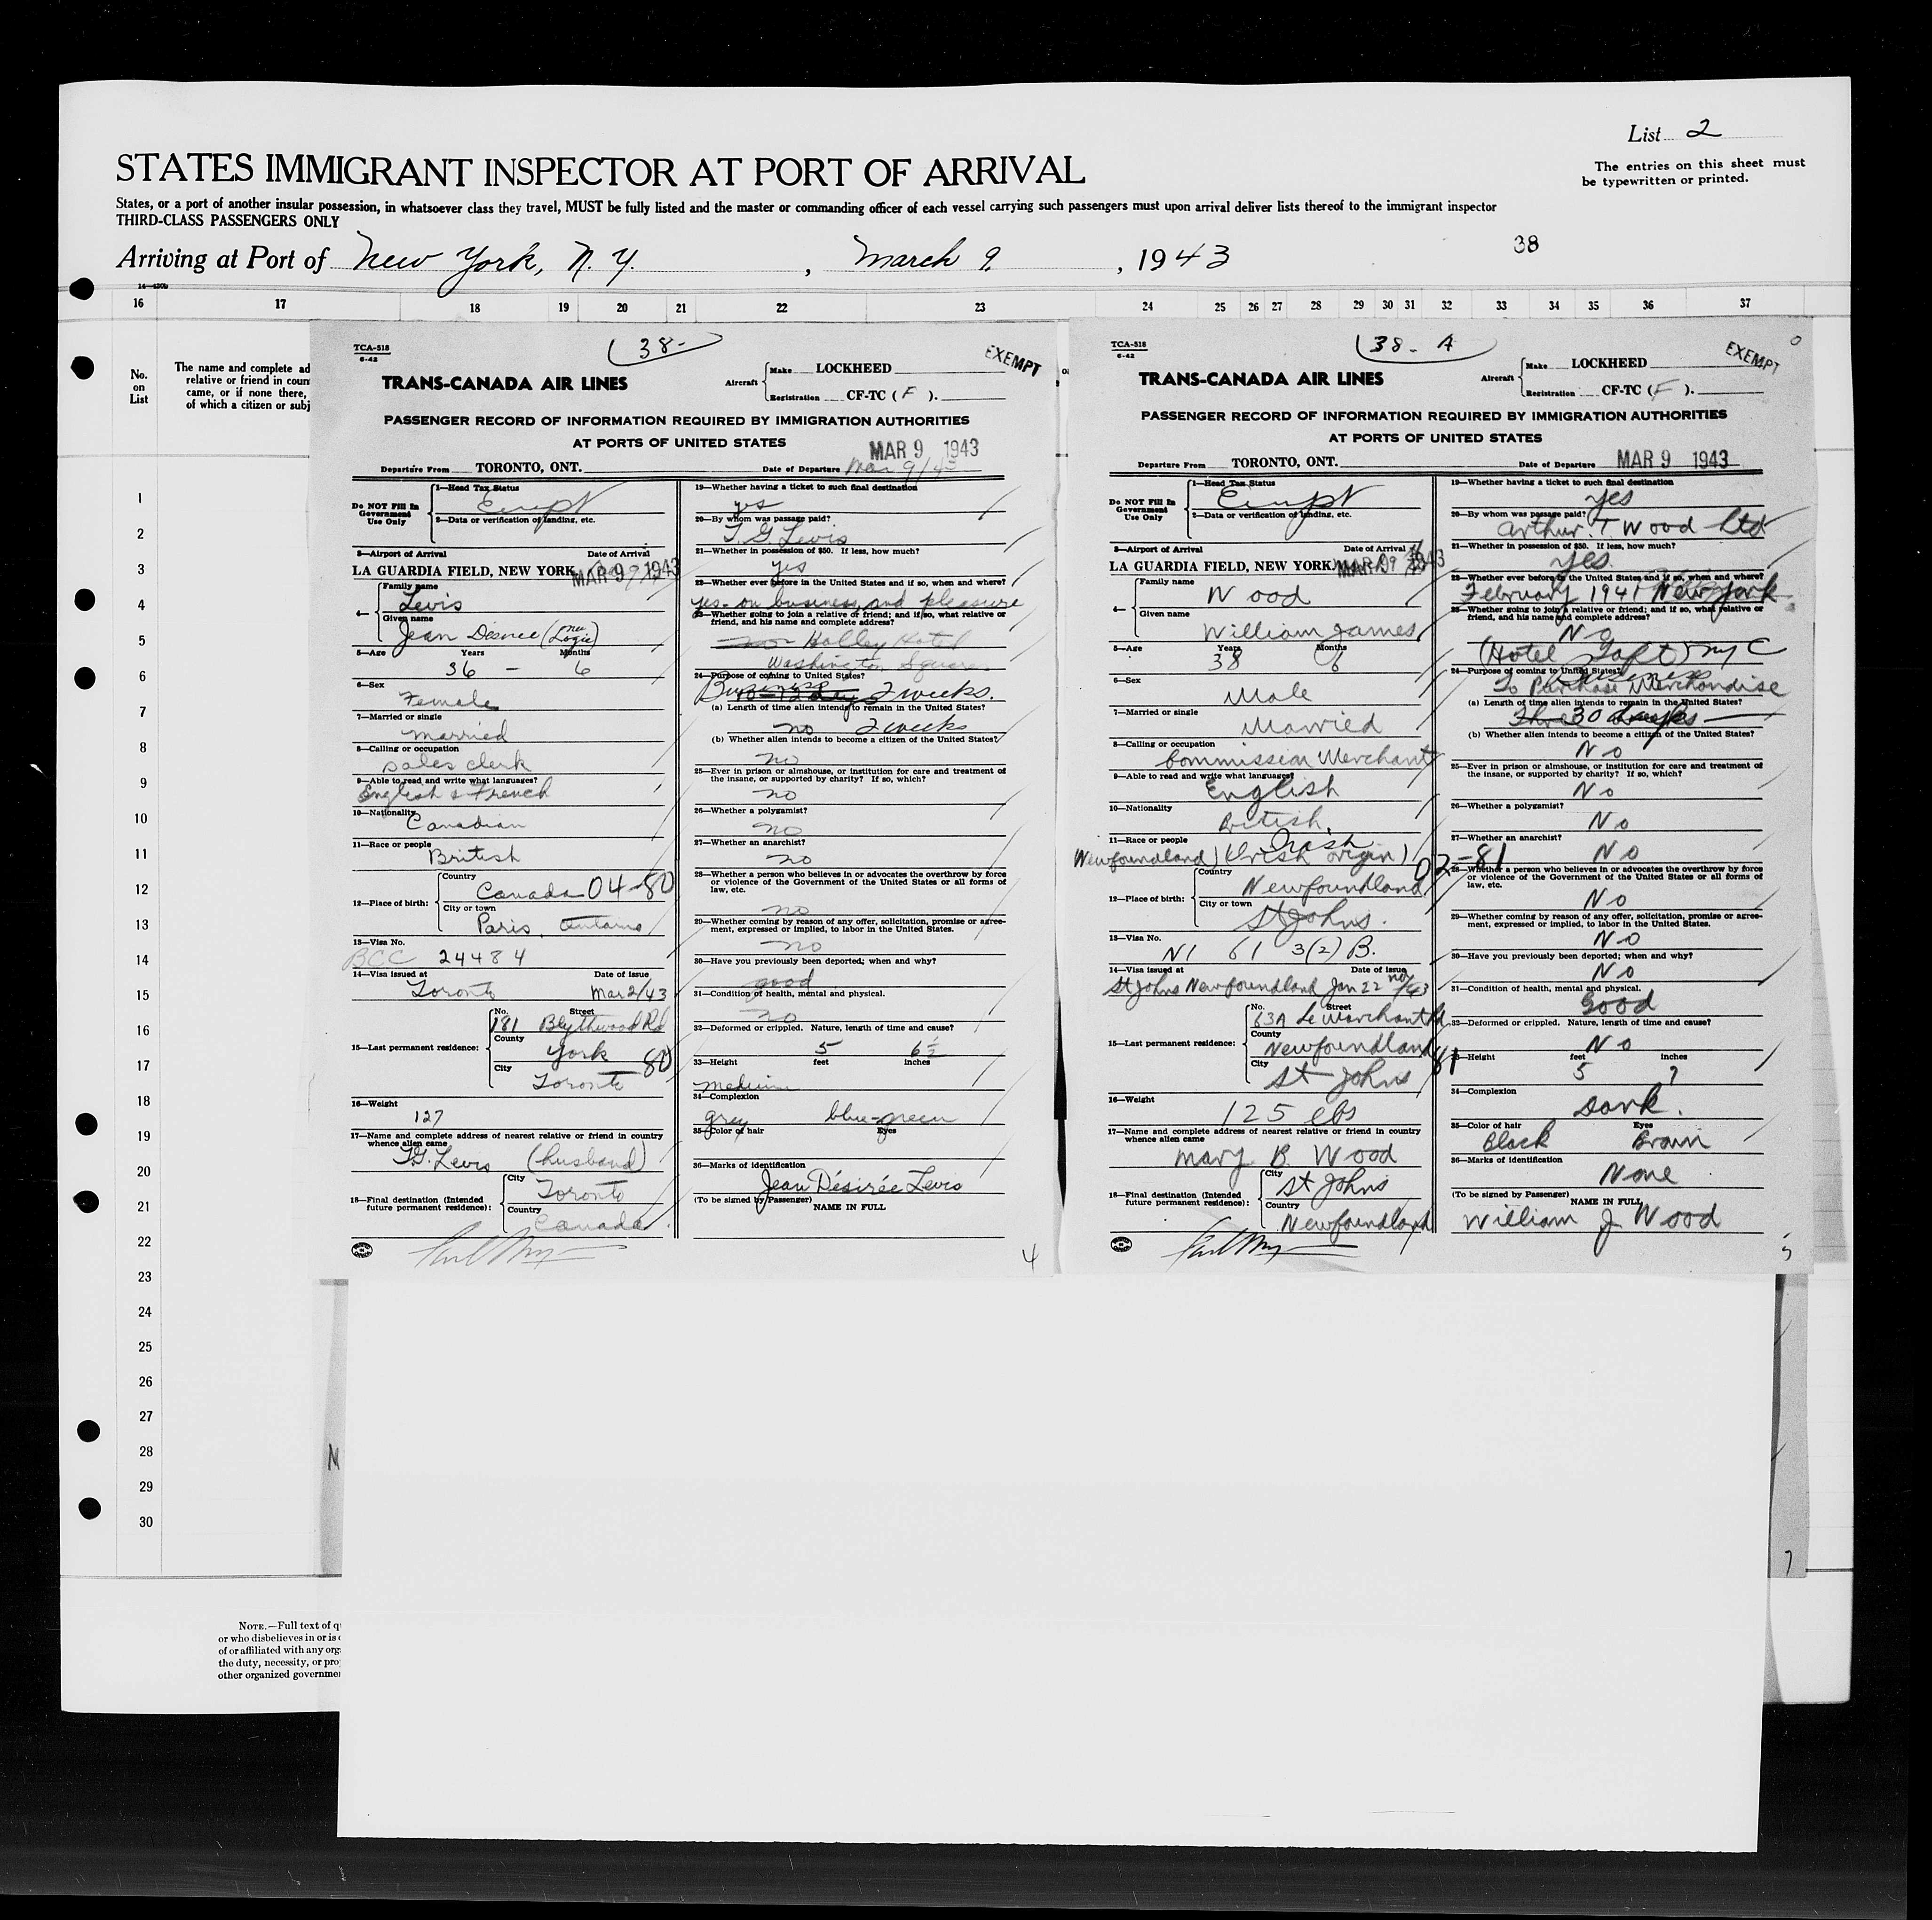 List 2
The entries on this sheet must
be typewritten or printed.
STATES IMMIGRANT INSPECTOR AT PORT OF ARRIVAL
States, or a port of another insular possession, in whatsoever class they travel, MUST be fully listed and the master or commanding officer of each vessel carrying such passengers must upon arrival deliver lists thereof to the immigrant inspector
THIRD-CLASS PASSENGERS ONLY
Arriving at Port of New York, N. Y. , March 9 , 1943
38
16 17 18 19 20 21 22 23 24 25 26 27 28 29 30 31 32 33 34 35 36 37
No.
on
List
The name and complete ad
relative or friend in coun
came, or if none there,
of which a citizen or subj
1
2
3
4
5
6
7
8
9
10
11
12
13
14
15
16
17
18
19
20
21
22
23
24
25
26
27
28
29
30
NOTE.—Full text of q
or who disbelieves in or is o
of or affiliated with any org
the duty, necessity, or pro
other organized governmen
TCA-518
6-42
38-
EXEMPT
TRANS-CANADA AIR LINES
Aircraft Make LOCKHEED
Registration CF-TC ( F ).
PASSENGER RECORD OF INFORMATION REQUIRED BY IMMIGRATION AUTHORITIES
AT PORTS OF UNITED STATES
MAR 9 1943
Departure From TORONTO, ONT. Date of Departure Mar 9/43
Do NOT Fill In
Government
Use Only
1—Head Tax Status
Exempt
2—Data or verification of landing, etc.
3—Airport of Arrival Date of Arrival
LA GUARDIA FIELD, NEW YORK MAR 9 1943
4— Family name
Lewis
Given name
Jean Desiree (nee Logie)
5—Age Years Months
36 - 6
6—Sex
Female
7—Married or single
Married
8—Calling or occupation
Sales clerk
9—Able to read and write what languages?
English & French
10—Nationality
Canadian
11—Race or people
British
12—Place of birth: Country
Canada 04-80
City or town
Paris, Ontario
13—Visa No.
BCC 24484
14—Visa issued at Date of issue
Toronto Mar 2/43
15—Last permanent residence: No. Street
181 Blythwood Rd
County
York 80
City
Toronto
16—Weight
127
17—Name and complete address of nearest relative or friend in country
whence alien came
T.G. Lewis (husband)
18—Final destination (Intended
future permanent residence): City
Toronto
Country
Canada
19—Whether having a ticket to such final destination
yes
20—By whom was passage paid?
T. G. Lewis
21—Whether in possession of $50. If less, how much?
yes
22—Whether ever before in the United States and if so, when and where?
yes - on business and pleasure
23—Whether going to join a relative or friend; and if so, what relative or
friend, and his name and complete address?
Holley Hotel
Washington Square
24—Purpose of coming to United States?
Business 2 weeks.
(a) Length of time alien intends to remain in the United States?
no 2 weeks
(b) Whether alien intends to become a citizen of the United States?
no
25—Ever in prison or almshouse, or institution for care and treatment of
the insane, or supported by charity? If so, which?
no
26—Whether a polygamist?
no
27—Whether an anarchist?
no
28—Whether a person who believes in or advocates the overthrow by force
or violence of the Government of the United States or all forms of
law, etc.
no
29—Whether coming by reason of any offer, solicitation, promise or agree-
ment, expressed or implied, to labor in the United States.
no
30—Have you previously been deported; when and why?
good
31—Condition of health, mental and physical.
no
32—Deformed or crippled. Nature, length of time and cause?
5 6½
33—Height feet inches
medium
34—Complexion
grey blue-green
35—Color of hair Eyes
36—Marks of identification
Jean Désirée Lewis
(To be signed by Passenger)
NAME IN FULL
4
TCA-518
6-42
38- A
EXEMPT
TRANS-CANADA AIR LINES
Aircraft Make LOCKHEED
Registration CF-TC ( F ).
PASSENGER RECORD OF INFORMATION REQUIRED BY IMMIGRATION AUTHORITIES
AT PORTS OF UNITED STATES
Departure From TORONTO, ONT. Date of Departure MAR 9 1943
Do NOT Fill In
Government
Use Only
1—Head Tax Status
Exempt
2—Data or verification of landing, etc.
3—Airport of Arrival Date of Arrival
LA GUARDIA FIELD, NEW YORK MAR 9 1943
4— Family name
Wood
Given name
William James
5—Age Years Months
38 6
6—Sex
Male
7—Married or single
Married
8—Calling or occupation
Commission Merchant
9—Able to read and write what languages?
English
10—Nationality
British
11—Race or people
Irish
Newfoundland) (Irish origin) 02-81
12—Place of birth: Country
Newfoundland
City or town
St Johns.
13—Visa No.
NI 61 3(2) B.
14—Visa issued at Date of issue
St Johns Newfoundland Jan 22nd/43
15—Last permanent residence: No. Street
63A Le Marchant Rd
County
Newfoundland 81
City
St Johns
16—Weight
125 lbs
17—Name and complete address of nearest relative or friend in country
whence alien came
Mary B. Wood
18—Final destination (Intended
future permanent residence): City
St Johns
Country
Newfoundland
19—Whether having a ticket to such final destination
yes
20—By whom was passage paid?
Arthur. T. Wood Ltd
21—Whether in possession of $50. If less, how much?
yes.
22—Whether ever before in the United States and if so, when and where?
February 1941 New York
23—Whether going to join a relative or friend; and if so, what relative or
friend, and his name and complete address?
No
(Hotel Taft) NYC
24—Purpose of coming to United States?
Business
To Purchase Merchandise
(a) Length of time alien intends to remain in the United States?
30 days
(b) Whether alien intends to become a citizen of the United States?
No
25—Ever in prison or almshouse, or institution for care and treatment of
the insane, or supported by charity? If so, which?
No
26—Whether a polygamist?
No
27—Whether an anarchist?
No
28—Whether a person who believes in or advocates the overthrow by force
or violence of the Government of the United States or all forms of
law, etc.
No
29—Whether coming by reason of any offer, solicitation, promise or agree-
ment, expressed or implied, to labor in the United States.
No
30—Have you previously been deported; when and why?
No
31—Condition of health, mental and physical.
Good
32—Deformed or crippled. Nature, length of time and cause?
No
33—Height feet inches
5 7
34—Complexion
Dark.
35—Color of hair Eyes
Black Brown
36—Marks of identification
None
(To be signed by Passenger) NAME IN FULL
William J Wood
7